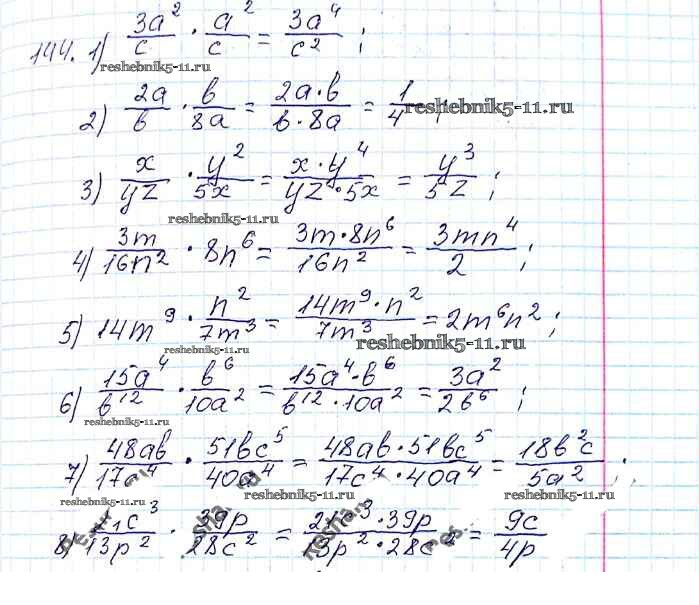 144. 1) 3a²/c · a²/c = 3a⁴/c² ;
reshebnik5-11.ru
2) 2a/b · b/8a = 2a·b/b·8a = 1/4 ;
reshebnik5-11.ru
3) x/yz · y²/5x = x·y⁴/yz·5x = y³/5z ;
reshebnik5-11.ru
4) 3m/16n² · 8n⁶ = 3m·8n⁶/16n² = 3mn⁴/2 ;
5) 14m⁹ · n²/7m³ = 14m⁹·n²/7m³ = 2m⁶n² ;
reshebnik5-11.ru reshebnik5-11.ru
6) 15a⁴/b¹² · b⁶/10a² = 15a⁴·b⁶/b¹²·10a² = 3a²/2b⁶ ;
reshebnik5-11.ru
7) 48ab/17c⁴ · 51bc⁵/40a⁴ = 48ab·51bc⁵/17c⁴·40a⁴ = 18b²c/5a² ;
reshebnik5-11.ru reshebnik5-11.ru reshebnik5-11.ru
8) 21c³/13p² · 39p/28c² = 21c³·39p/13p²·28c² = 9c/4p